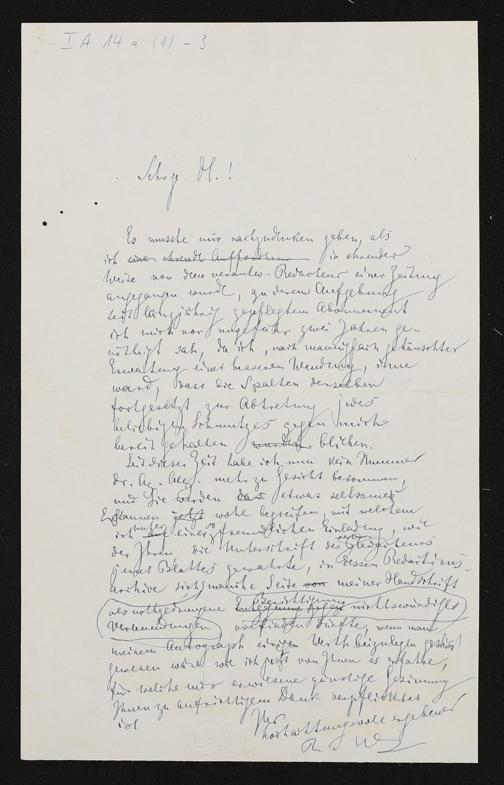 I A 14 a (1) - 3
Sehr g. H.!
Es musste mir nachzudenken geben, als
ich einen ehrende Aufforderung in ehrender
Weise von dem verantw. Redacteur einer Zeitung
angegangen wurde, zu deren Aufgebung
seit langjährig gepflegtem Abonnement
ich mich vor ungefähr zwei Jahren ge-
nöthigt sah, da ich, nach mannigfach getäuschter
Erwartung einer besseren Wendung, inne
ward, dass die Spalten derselben
fortgesetzt zur Abtretung jedes
beliebigen Schmutzes gegen mich
bereit gehalten wurden blieben.
Seit dieser Zeit habe ich nun kein Nummer
dr. Ag. Allg. mehr zu Gesicht bekommen,
und Sie werden das etwas seltsame
Erstaunen jetzt wohl begreifen, mit welchem
ich unter einer so freundlichen Einladung, wie
der Ihren die Unterschrift des Redacteurs
jenes Blattes gewahrte, in dessen Redactions-
archive sich manche Seite von meiner Handschrift
als nothgedrungene Berichtigung nichtswürdiger
Verleumdungen vorfinden dürfte, wenn man
meinem Autograph einigen Werth beizulegen gesonnen
gewesen wäre wie ich jetzt von Ihnen es erfahre,
für welche mir erwiesene günstige Gesinnung
Ihnen zu aufrichtigem Dank verpflichtet
ist Ihr
hochachtungsvoll ergebener